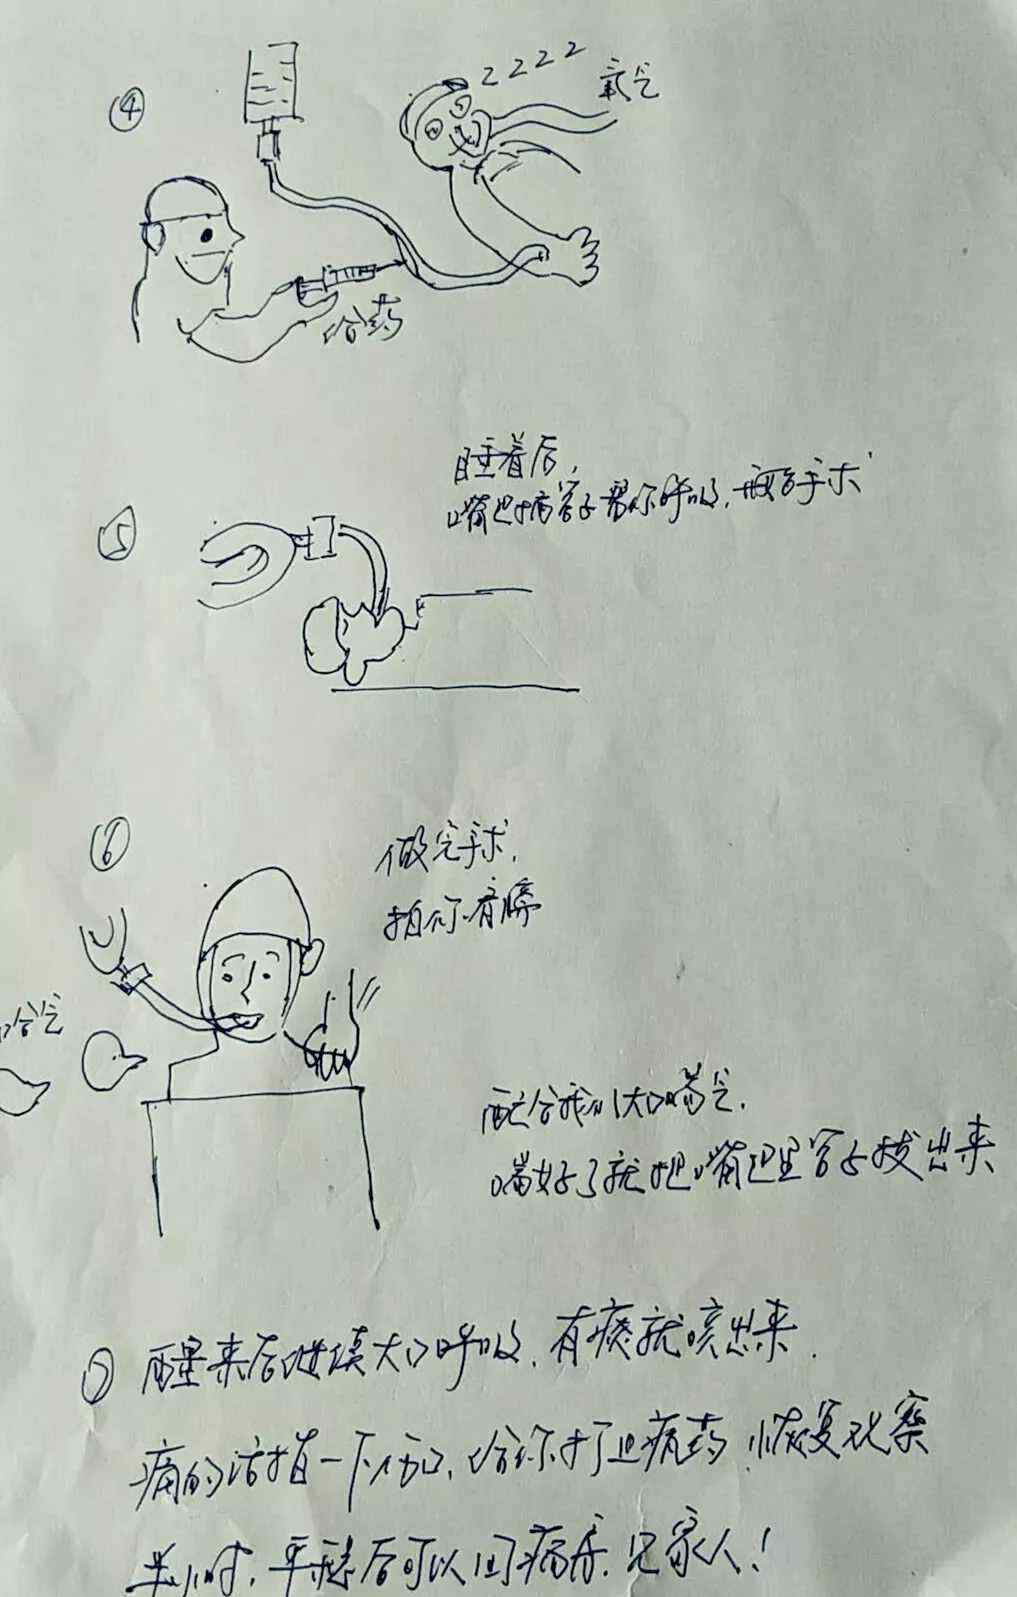 ④
ZZZZ
氧气
给药
⑤
睡着后,
嘴巴插管子帮你呼吸,开始手术
⑥
做完手术,
拍你肩膀
哈气
配合我们大口喘气,
喘好了就把嘴巴里管子拔出来
⑦ 醒来后继续大口呼吸,有痰就咳出来.
痛的话指一下伤口,给你打止痛药,恢复观察
半小时,平稳后可以回病房,见家人!